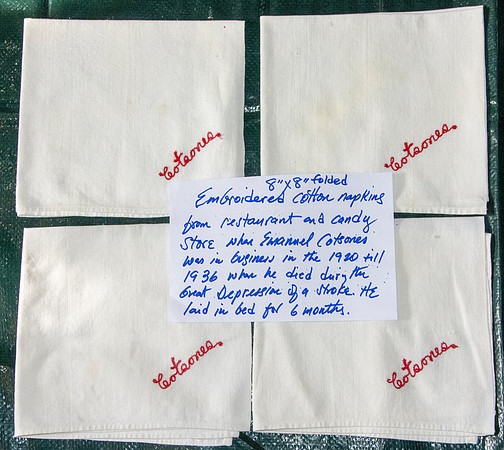 Cotsones.
Cotsones.
8" x 8" folded
Embroidered cotton napkins
from restaurant and candy
Store when Emannuel Cotsones
was in business in the 1920 till
1936 when he died during the
Great Depression of a stroke. HE
laid in bed for 6 months.
Cotsones.
Cotsones.